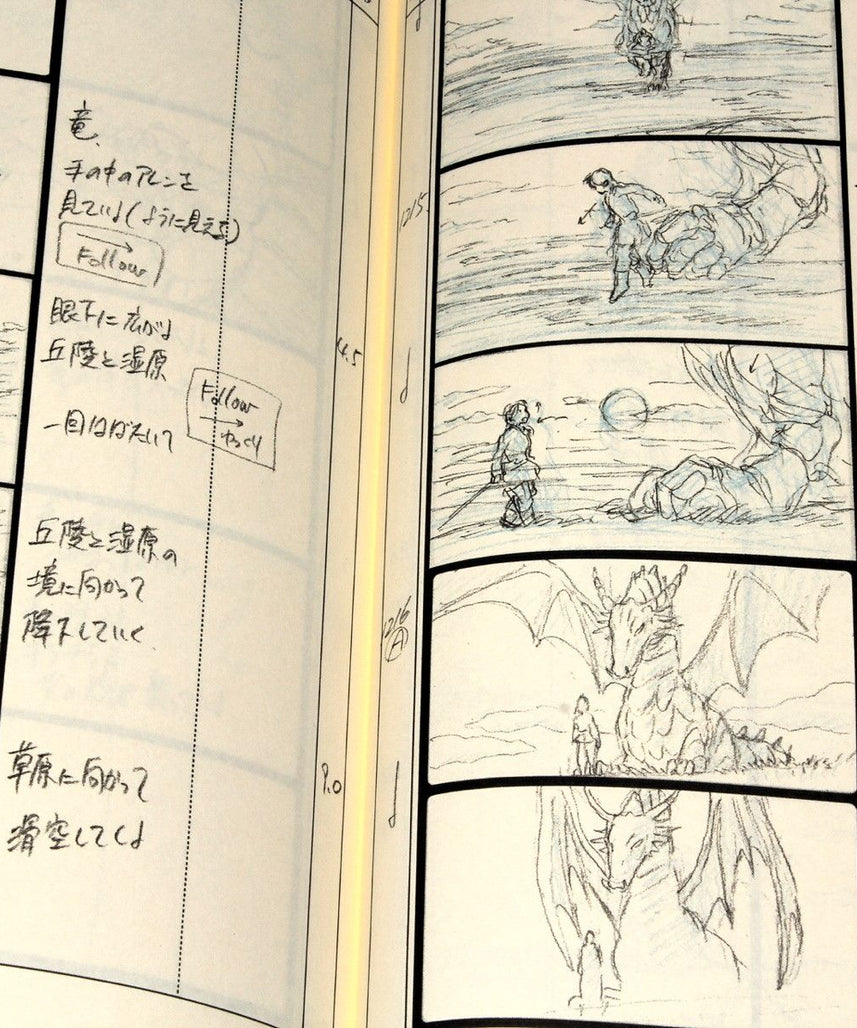 竜、
手の中のアレンを
見ている(ように見える)
Follow
眼下に広がる
丘陵と湿原
Follow
ゆっくり
一回はばたいて
丘陵と湿原の
境に向かって
降下していく
草原に向かって
滑空してくる
4.5
9.0
1215
1216
A